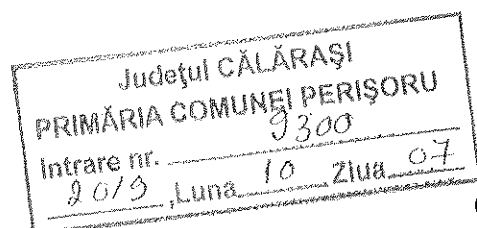 Județul CĂLĂRAȘI
PRIMĂRIA COMUNEI PERIȘORU
Intrare nr. 9300
2019 ,Luna 10 Ziua 07